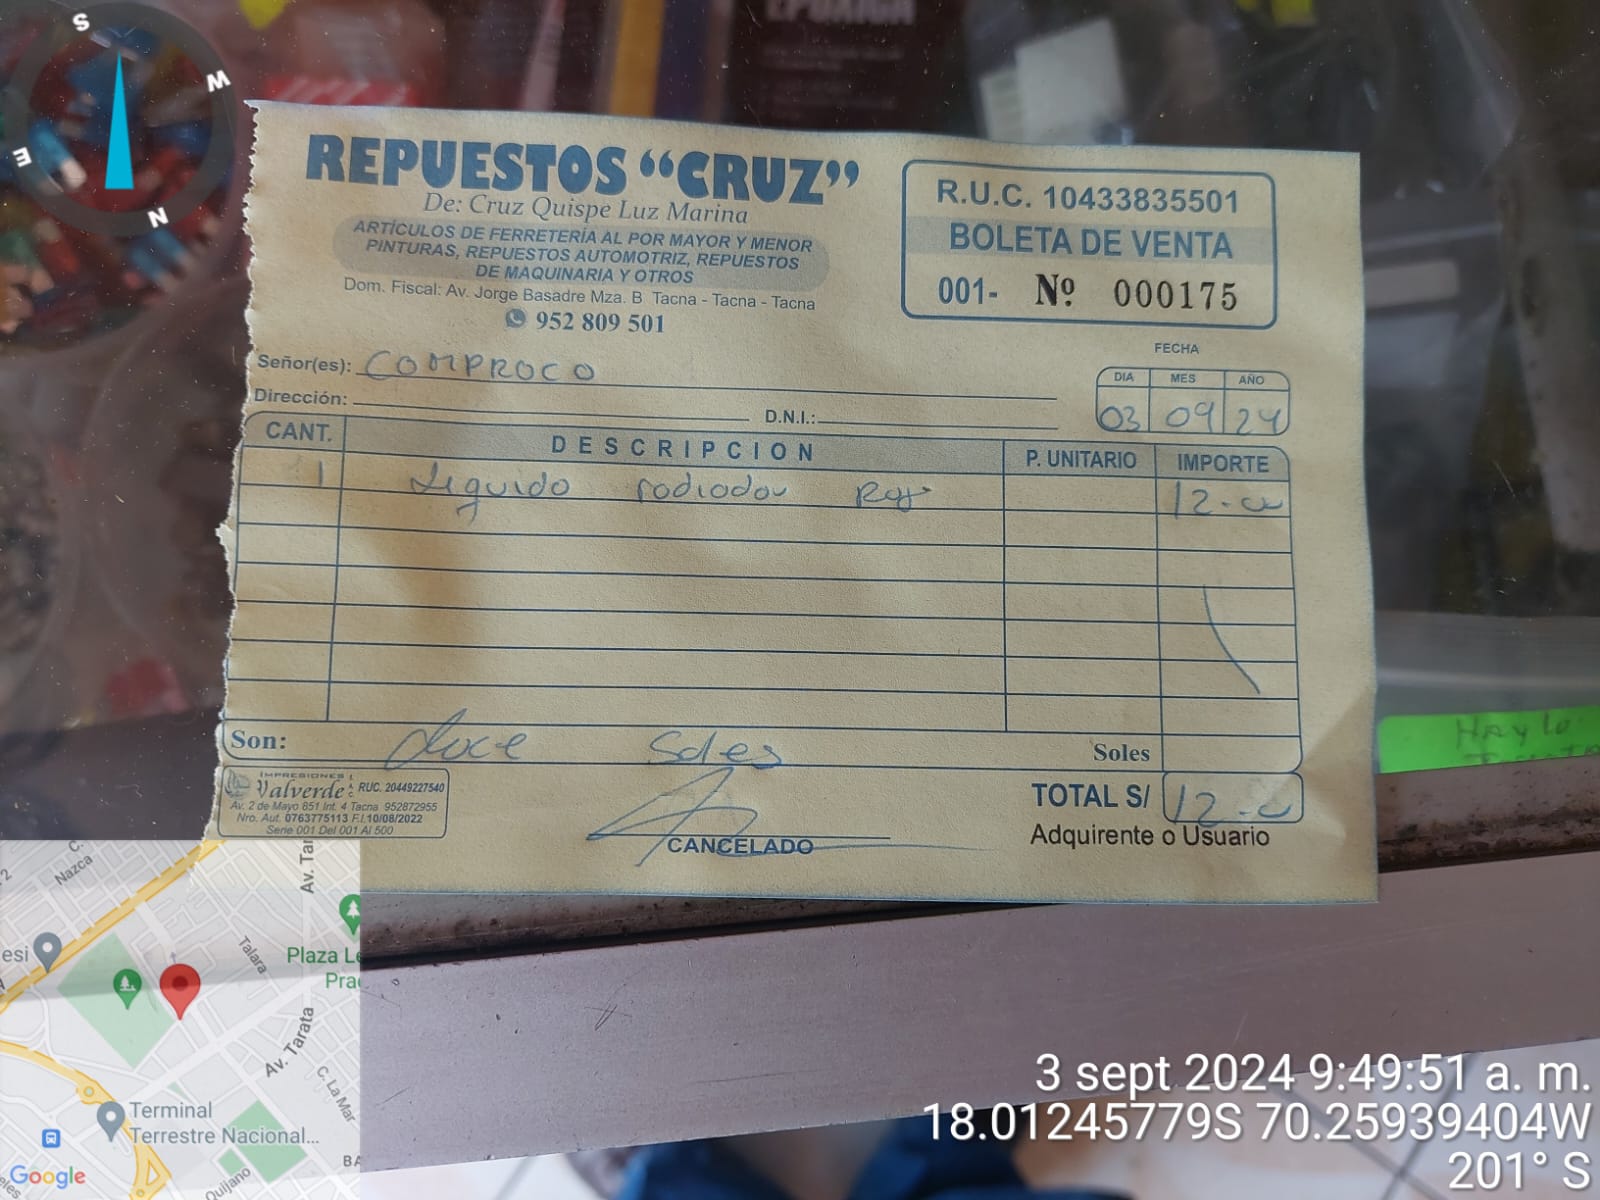 S
W
E
N
EPOXICA
REPUESTOS “CRUZ”
De: Cruz Quispe Luz Marina
ARTÍCULOS DE FERRETERÍA AL POR MAYOR Y MENOR
PINTURAS, REPUESTOS AUTOMOTRIZ, REPUESTOS
DE MAQUINARIA Y OTROS
Dom. Fiscal: Av. Jorge Basadre Mza. B Tacna - Tacna - Tacna
952 809 501
R.U.C. 10433835501
BOLETA DE VENTA
001- Nº 000175
FECHA
DIA MES AÑO
03 09 24
Señor(es): COMPROCO
Dirección: D.N.I.:
CANT. DESCRIPCION P. UNITARIO IMPORTE
1 Liquido radiador 12.00
Son: doce Soles Soles
IMPRESIONES
Valverde RUC. 20449227540
Av. 2 de Mayo 851 Int. 4 Tacna 952872955
Nro. Aut. 0763775113 F.I.10/08/2022
Serie 001 Del 001 Al 500
CANCELADO
TOTAL S/ 12.00
Adquirente o Usuario
Hay lo
C. Nazca
Av. Tar
esi
Talara
Plaza Le
Prad
Av. Tarata
C. La Mar
Terminal
Terrestre Nacional...
Quijano
BA
Google
3 sept 2024 9:49:51 a. m.
18.01245779S 70.25939404W
201° S